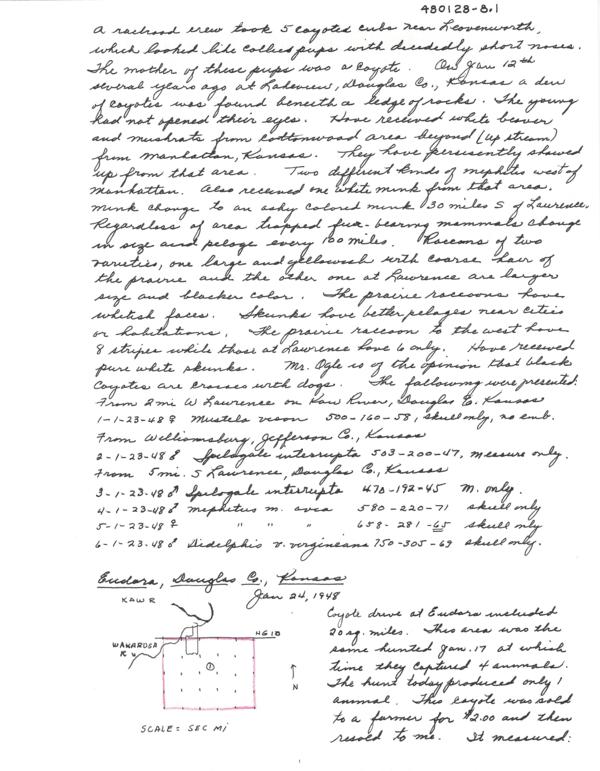 480128-B.1
A railroad crew took 5 coyotes cubs near Leavenworth,
which looked like collies pups with decidedly short noses.
The mother of these pups was a coyote. On Jan 12th
several years ago at Lakeview, Douglas Co., Kansas a den
of coyotes was found beneath a ledge of rocks. The young
had not opened their eyes. Have received white beaver
and muskrats from cottonwood area beyond (up stream)
from Manhattan, Kansas. They have persistently showed
up from that area. Two different kinds of mephites west of
Manhattan. Also received one white mink from that area.
Mink change to an ashy colored mink 30 miles S of Lawrence.
Regardless of area trapped fur-bearing mammals change
in size and pelage every 100 miles. Raccons of two
varieties, one large and yellowish with coarse hair of
the prairie and the other one at Lawrence are larger
size and blacker color. The prairie raccoons have
whitish faces. Skunks have better pelages near cities
or habitations. The prairie raccoon to the west have
8 stripes while those at Lawrence have 6 only. Have received
pure white skunks. Mr. Ogle is of the opinion that black
coyotes are crosses with dogs. The following were presented:
From 2 mi W Lawrence on Kaw River, Douglas Co. Kansas
1-1-23-48 ♀ Mustela vison 500-160-58, skull only, no emb.
From Williamsburg, Jefferson Co., Kansas
2-1-23-48 ♂ Spilogale interrupta 503-200-47, measure only.
From 5 mi. S Lawrence, Douglas Co., Kansas
3-1-23-48 ♂ Spilogale interrupta 470-192-45 M. only.
4-1-23-48 ♂ Mephetus m. avia 580-220-71 skull only
5-1-23-48 ♀ " " " 658-281-65 skull only
6-1-23-48 ♂ Didelphis v. virgineana 750-305-69 skull only.
Eudora, Douglas Co., Kansas
Jan 24, 1948
KAW R
WAKAROSA
R
HG 10
1
N
SCALE = SEC MI
Coyote drive at Eudora included
20 sq. miles. This area was the
same hunted Jan. 17 at which
time they captured 4 animals.
The hunt today produced only 1
animal. This coyote was sold
to a farmer for $2.00 and then
resold to me. It measured: